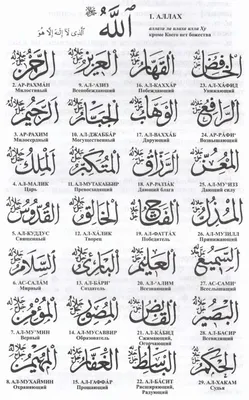 اللَّهُ
الَّذِي لَا إِلَهَ إِلَّا هُوَ
1. АЛЛАХ
кроме Коего нет божества
الرحمن العزيز القهار الخافض
2. АР-РАХМАН 9. АЛ-'АЗИЗ 16. АЛ-КАХХАР 23. АЛ-ХАФИД
Милостивый Всепобеждающий Победитель Унижающий
الرحيم الجبار الوهاب الرافع
3. АР-РАХИМ 10. АЛ-ДЖАББАР 17. АЛ-ВАХХАБ 24. АР-РАФИ'
Милосердный Могущественный Дарующий Возвышающий
الملك المتكبر الرزاق المعز
4. АЛ-МАЛИК 11. АЛ-МУТАКАББИР 18. АР-РАЗЗАК 25. АЛ-МУ'ИЗЗ
Царь Превосходящий Дающий блага Дающий силу
القدوس الخالق الفتاح المذل
5. АЛ-КУДДУС 12. АЛ-ХАЛИК 19. АЛ-ФАТТАХ 26. АЛ-МУЗИЛЛ
Священный Творец Победитель Принижающий
السلام البارئ العليم السميع
6. АС-САЛАМ 13. АЛ-БАРИ' 20. АЛ-АЛИМ 27. АС-САМИ'
Мирный Создатель Всезнающий Всеслышащий
المؤمن المصور القابض البصير
7. АЛ-МУ'МИН 14. АЛ-МУСАВВИР 21. АЛ-КАБИД 28. АЛ-БАСИР
Верный Образователь Сжимающий, Всевидящий
Ограничивающий
المهيمن الغفار الباسط الحكم
8. АЛ-МУХАЙМИН 15. АЛ-ГАФФАР 22. АЛ-БАСИТ 29. АЛ-ХАКАМ
Охраняющий Прощающий Расширяющий, Судья
Радующий